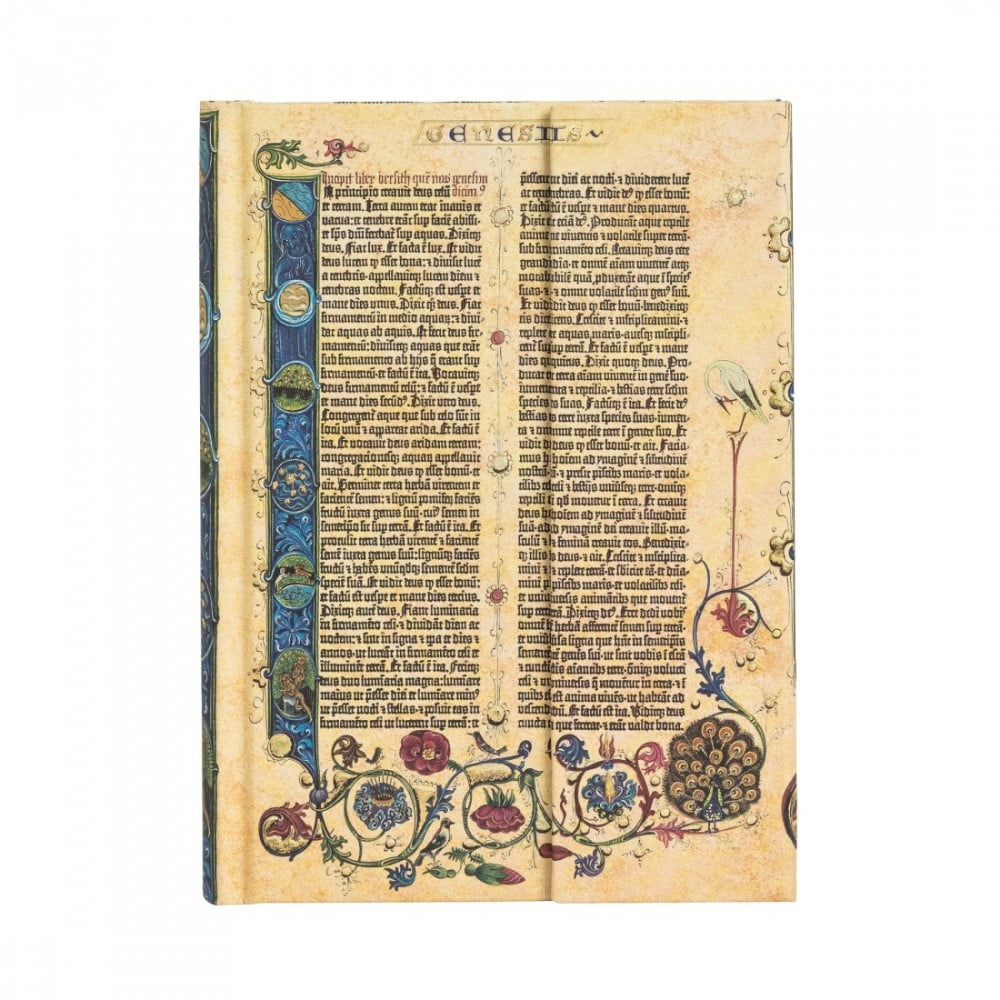 GENESIS
Incipit liber bresith quē nos genesim
A principio creauit deus celū dicim⁹
et terram. Terra autem erat inanis et
vacua: et tenebre erāt sup faciē abissi:
et sp̄s dn̄i ferebat᷑ sup aquas. Dixitq;
deus. Fiat lux. Et facta ē lux. Et vidit
deus lucem q̄ esset bona: ⁊ diuisit lucē
a tenebris·appellauitq; lucem diem ⁊
tenebras noctem. Factūq; est vespe et
mane dies vnus. Dixit q̄; deus. Fiat
firmamentū in medio aquaꝝ: ⁊ diui-
dat aquas ab aquis. Et fecit deus fir-
mamentū: diuisitq; aquas que erāt
sub firmamento ab hijs q̄ erant sup
firmamentū: et factū ē ita. Vocauitq;
deus firmamentū celū: ⁊ factū ē vespe
et mane dies secūd⁹. Dixit vero deus.
Congregent᷑ aque que sub celo sūt in
locū vnū ⁊ appareat arida. Et factū ē
ita. Et vocauit deus aridam terram:
congregacionesq; aquaꝝ appellauit
maria. Et vidit deus q̄ esset bonū·et
ait. Germinet terra herbā virentem et
facientē semen: ⁊ lignū pomiferū faciēs
fructū iuxta genus suū: cui⁹ semen in
semetip̄o sit sup terrā. Et factū ē ita. Et
protulit terra herbam virentē ⁊ facientē
semē iuxta genus suū: lignūq; faciēs
fructū ⁊ habēs vnūqdq; sementē scdm
speciē suā. Et vidit deus q̄ esset bonū:
et factū est vespe et mane dies tercius.
Dixitq; autē deus. Fiant luminaria
in firmamēto celi· ⁊ diuidāt diem ac
noctem: ⁊ sint in signa ⁊ tp̄a et dies ⁊
annos· ut luceāt in firmamēto celi et
illuminēt terrā. Et factū ē ita. Fecitq;
deus duo luminaria magna: lumiare
maius ut p̄esset diei et lumiare min⁹
ut p̄esset nocti ⁊ stellas· ⁊ posuit eas in
firmamēto celi ut lucerent sup terrā: et
p̄essent diei ac nocti· ⁊ diuiderent lucē
ac tenebras. Et vidit de⁹ q̄ esset bonū:
et factū ē vespe et mane dies quartus.
Dixit eciā de⁹. Producant aque reptile
anime viuentis ⁊ volatile super terrā·
sub firmamento celi. Creauitq; deus cete
grandia·et omnē aīam viuentē atq;
motabilē quā p̄duxerāt aque ī species
suas· ⁊ omne volatile scdm gen⁹ suū.
Et vidit deus q̄ esset bonū· benedixitq;
eis dicens. Crescite ⁊ mltiplicamini· ⁊
replete aquas maris· auesq; mltipli-
cent᷑ sup terrā. Et factū ē vespe ⁊ mane
dies quintus. Dixit quoq; deus. Pro-
ducat terra aīam viuentē in genē suo·
iumenta ⁊ reptilia· ⁊ bestias terre scdm
species suas. Factūq; ē ita. Et fecit de⁹
bestias terre iuxta species suas· iumen-
ta ⁊ omne reptile terre ī genere suo. Et
vidit deus q̄ esset bonū· et ait. Facia-
mus hoīem ad ymaginē ⁊ silitudinē
nostrā· ⁊ presit piscib⁹ maris· et vola-
tilib⁹ celi ⁊ bestijs vniūseq; terre· omiq;
reptili qd mouetur ī terra. Et creauit
deus hoīem ad ymaginē ⁊ silitudinē
suā· ad ymaginē dei creauit illū· ma-
sculū ⁊ feminā creauit eos. Benedixit-
q; illis deus· ⁊ ait. Crescite ⁊ mltiplica-
mini ⁊ replete terrā· et sbicite eā· et dn̄a-
mini piscib⁹ maris· et volatilib⁹ celi·
et vniuersis animātibus que mouent᷑
sup terrā. Dixitq; de⁹. Ecce dedi vobis
omnē herbā afferentē semen sup terrā·
et vniūsa ligna que hn̄t in semetipsis
semente genēis sui· ut sint vobis ī escā
⁊ cunctis aīantibus terre· oniq; volucri
celi ⁊ vniuersis q̄ mouentur in terra· ⁊ ī
quibus est anima viuēs· ut habeāt ad
vescendū. Et factū est ita. Viditq; deus
cuncta que fecerat· ⁊ erāt valde bona.